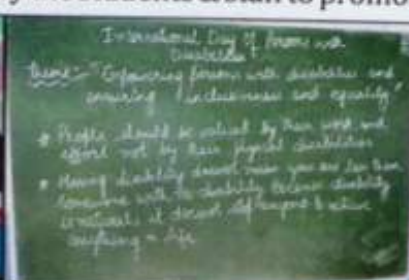 students
to promo
International Day of Persons with
Disabilities
theme:- "Empowering persons with disabilities and
ensuring inclusiveness and equality"
* People should be valued by their work and
effort not by their physical disabilities
* Having disability doesn't mean you are less than
someone with no disability because disability
is natural it doesn't to achive
anything in life